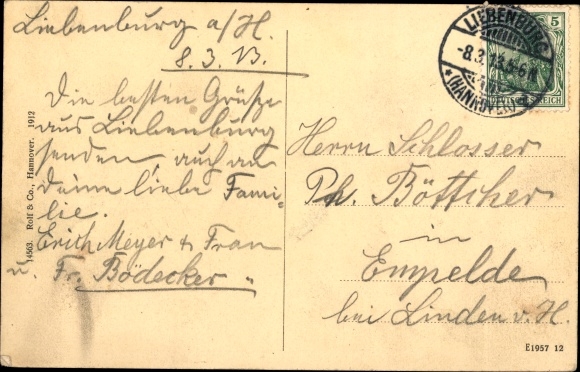 Liebenburg a/H.
8.3.13.
Die besten Grüße
aus Liebenburg
senden auch an
Deine liebe Fami-
lie.
Erich Meyer & Frau
u. Fr. Bödecker "
14563. Rolf & Co., Hannover. 1912
LIEBENBURG
-8.3.13.5-6N.
* (HANNOVER)
5
DEUTSCHES REICH
Herrn Schlosser
Ph. Böttcher
in
Empelde
bei Linden v. H.
E1957 12